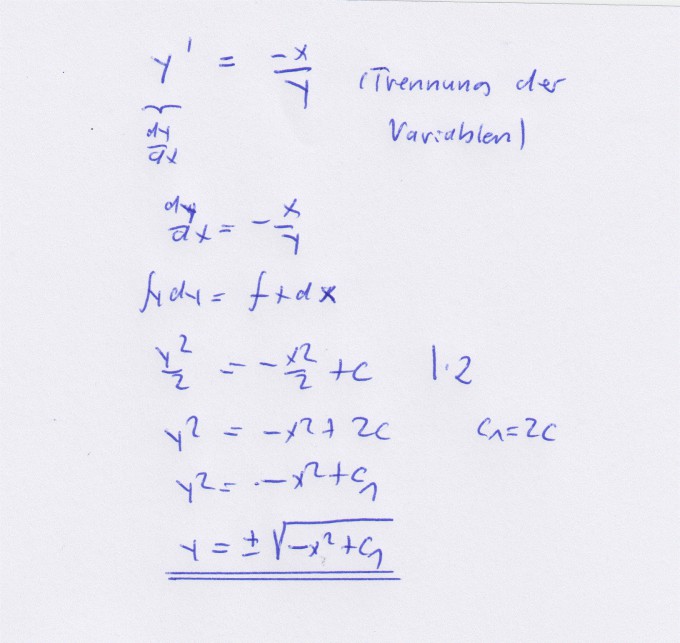 y' = -x/y (Trennung der
dy/dx Variablen)
dy/dx = - x/y
∫y dy = ∫ x dx
y²/2 = - x²/2 + C |·2
y² = -x² + 2C C₁ = 2C
y² = -x² + C₁
y = ± √(-x² + C₁)